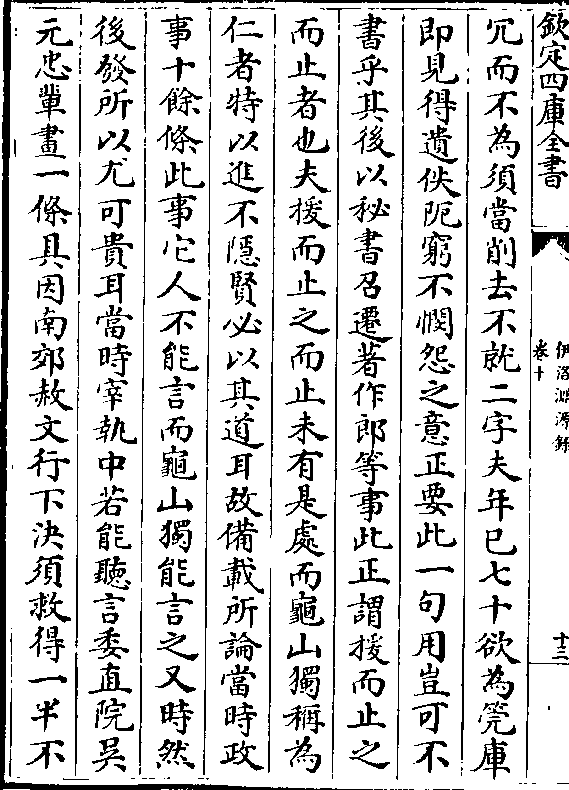 欽定四庫全書
伊洛淵源錄
卷十
十三
冗而不為須當削去不就二字夫年已七十欲為筦庫
即見得遺佚阨窮不憫怨之意正要此一句用豈可不
書乎其後以秘書召遷著作郎等事此正謂援而止之
而止者也夫援而止之而止未有是處而龜山獨稱為
仁者特以進不隱賢必以其道耳故備載所論當時政
事十餘條此事它人不能言而龜山獨能言之又時然
後發所以尤可貴耳當時宰執中若能聽言委直院吳
元忠輩畫一條具因南郊赦文行下決須救得一半不